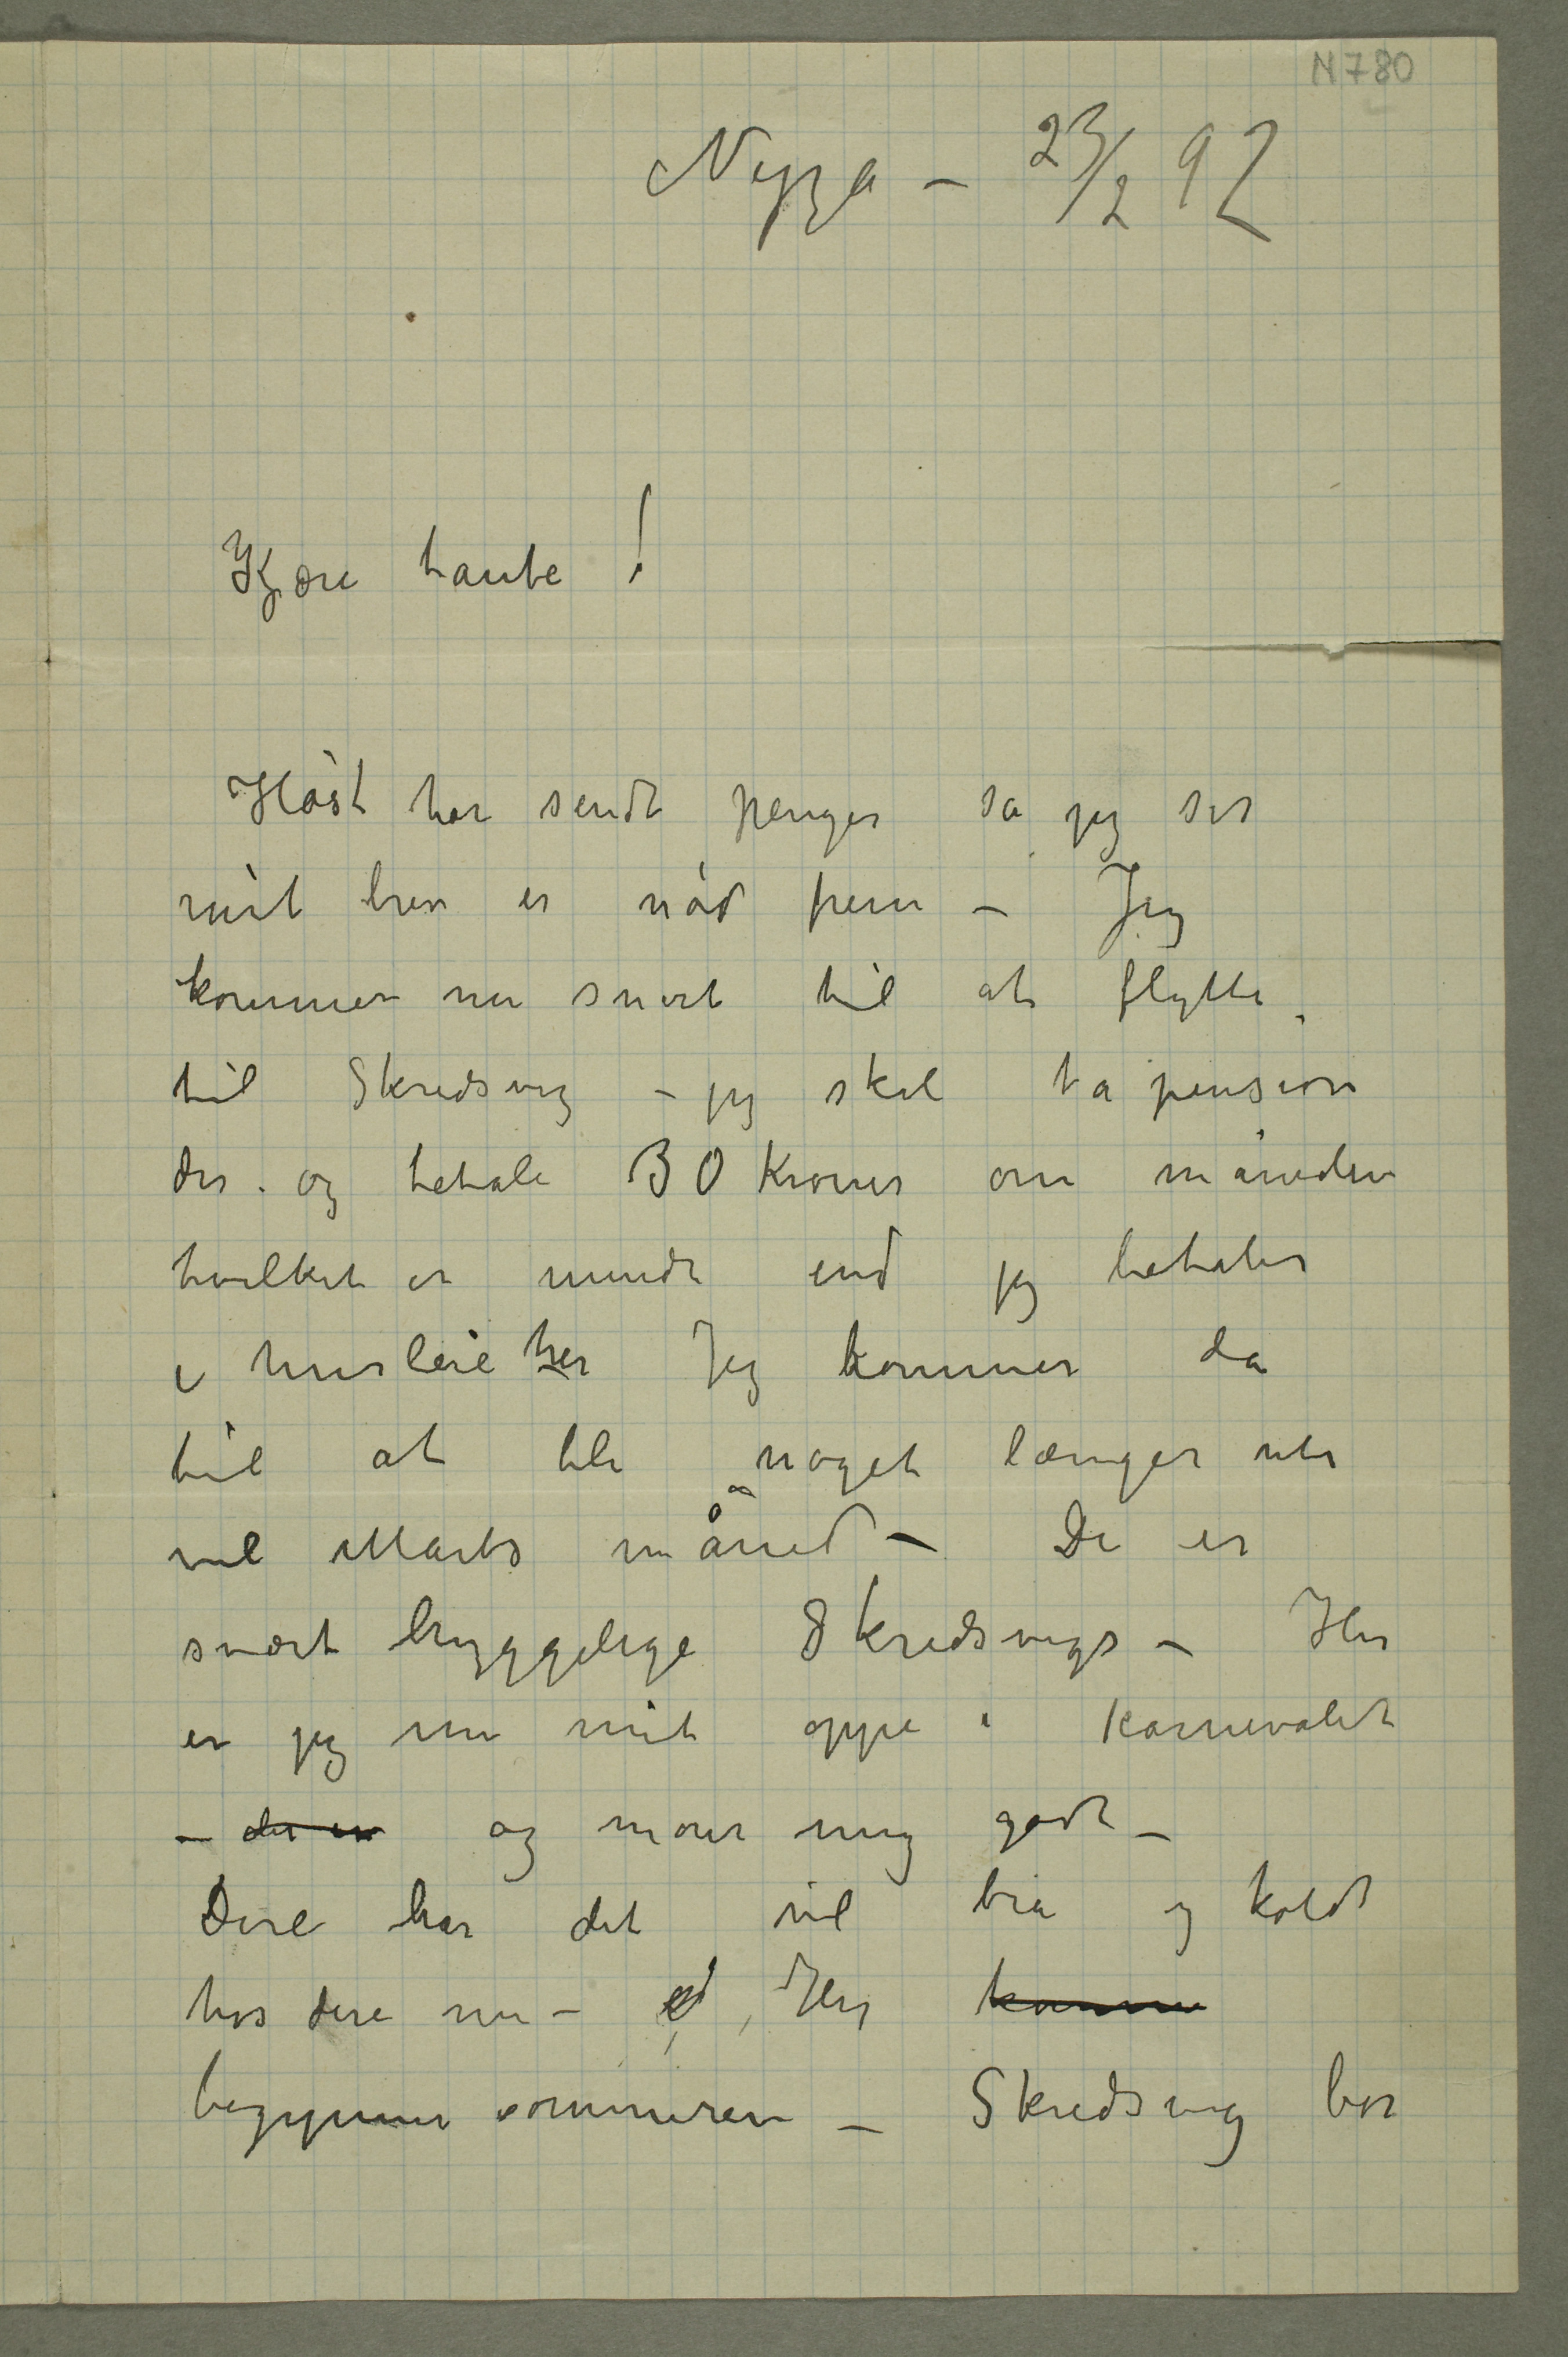 N 780
Nizza – 23/2 92
Kjære tante!
Høst har sendt penger så jeg ser
mit brev er nåd frem – Jeg
kommer nu snart til at flytte
til Skredsvig – jeg skal ta pension
der og betale 30 kroner om måneden
hvilket er mindre end jeg betaler
i husleie her Jeg kommer da
til at bli noget længer ude
vel Marts måned – De er
svært hyggelige Skredsvigs – Her
er jeg nu mit oppe i karnevalet
– der er og morer mig godt –
Dere har det vel bra og koldt
hos dere nu – Her
begynner sommeren – Skredsvig bor